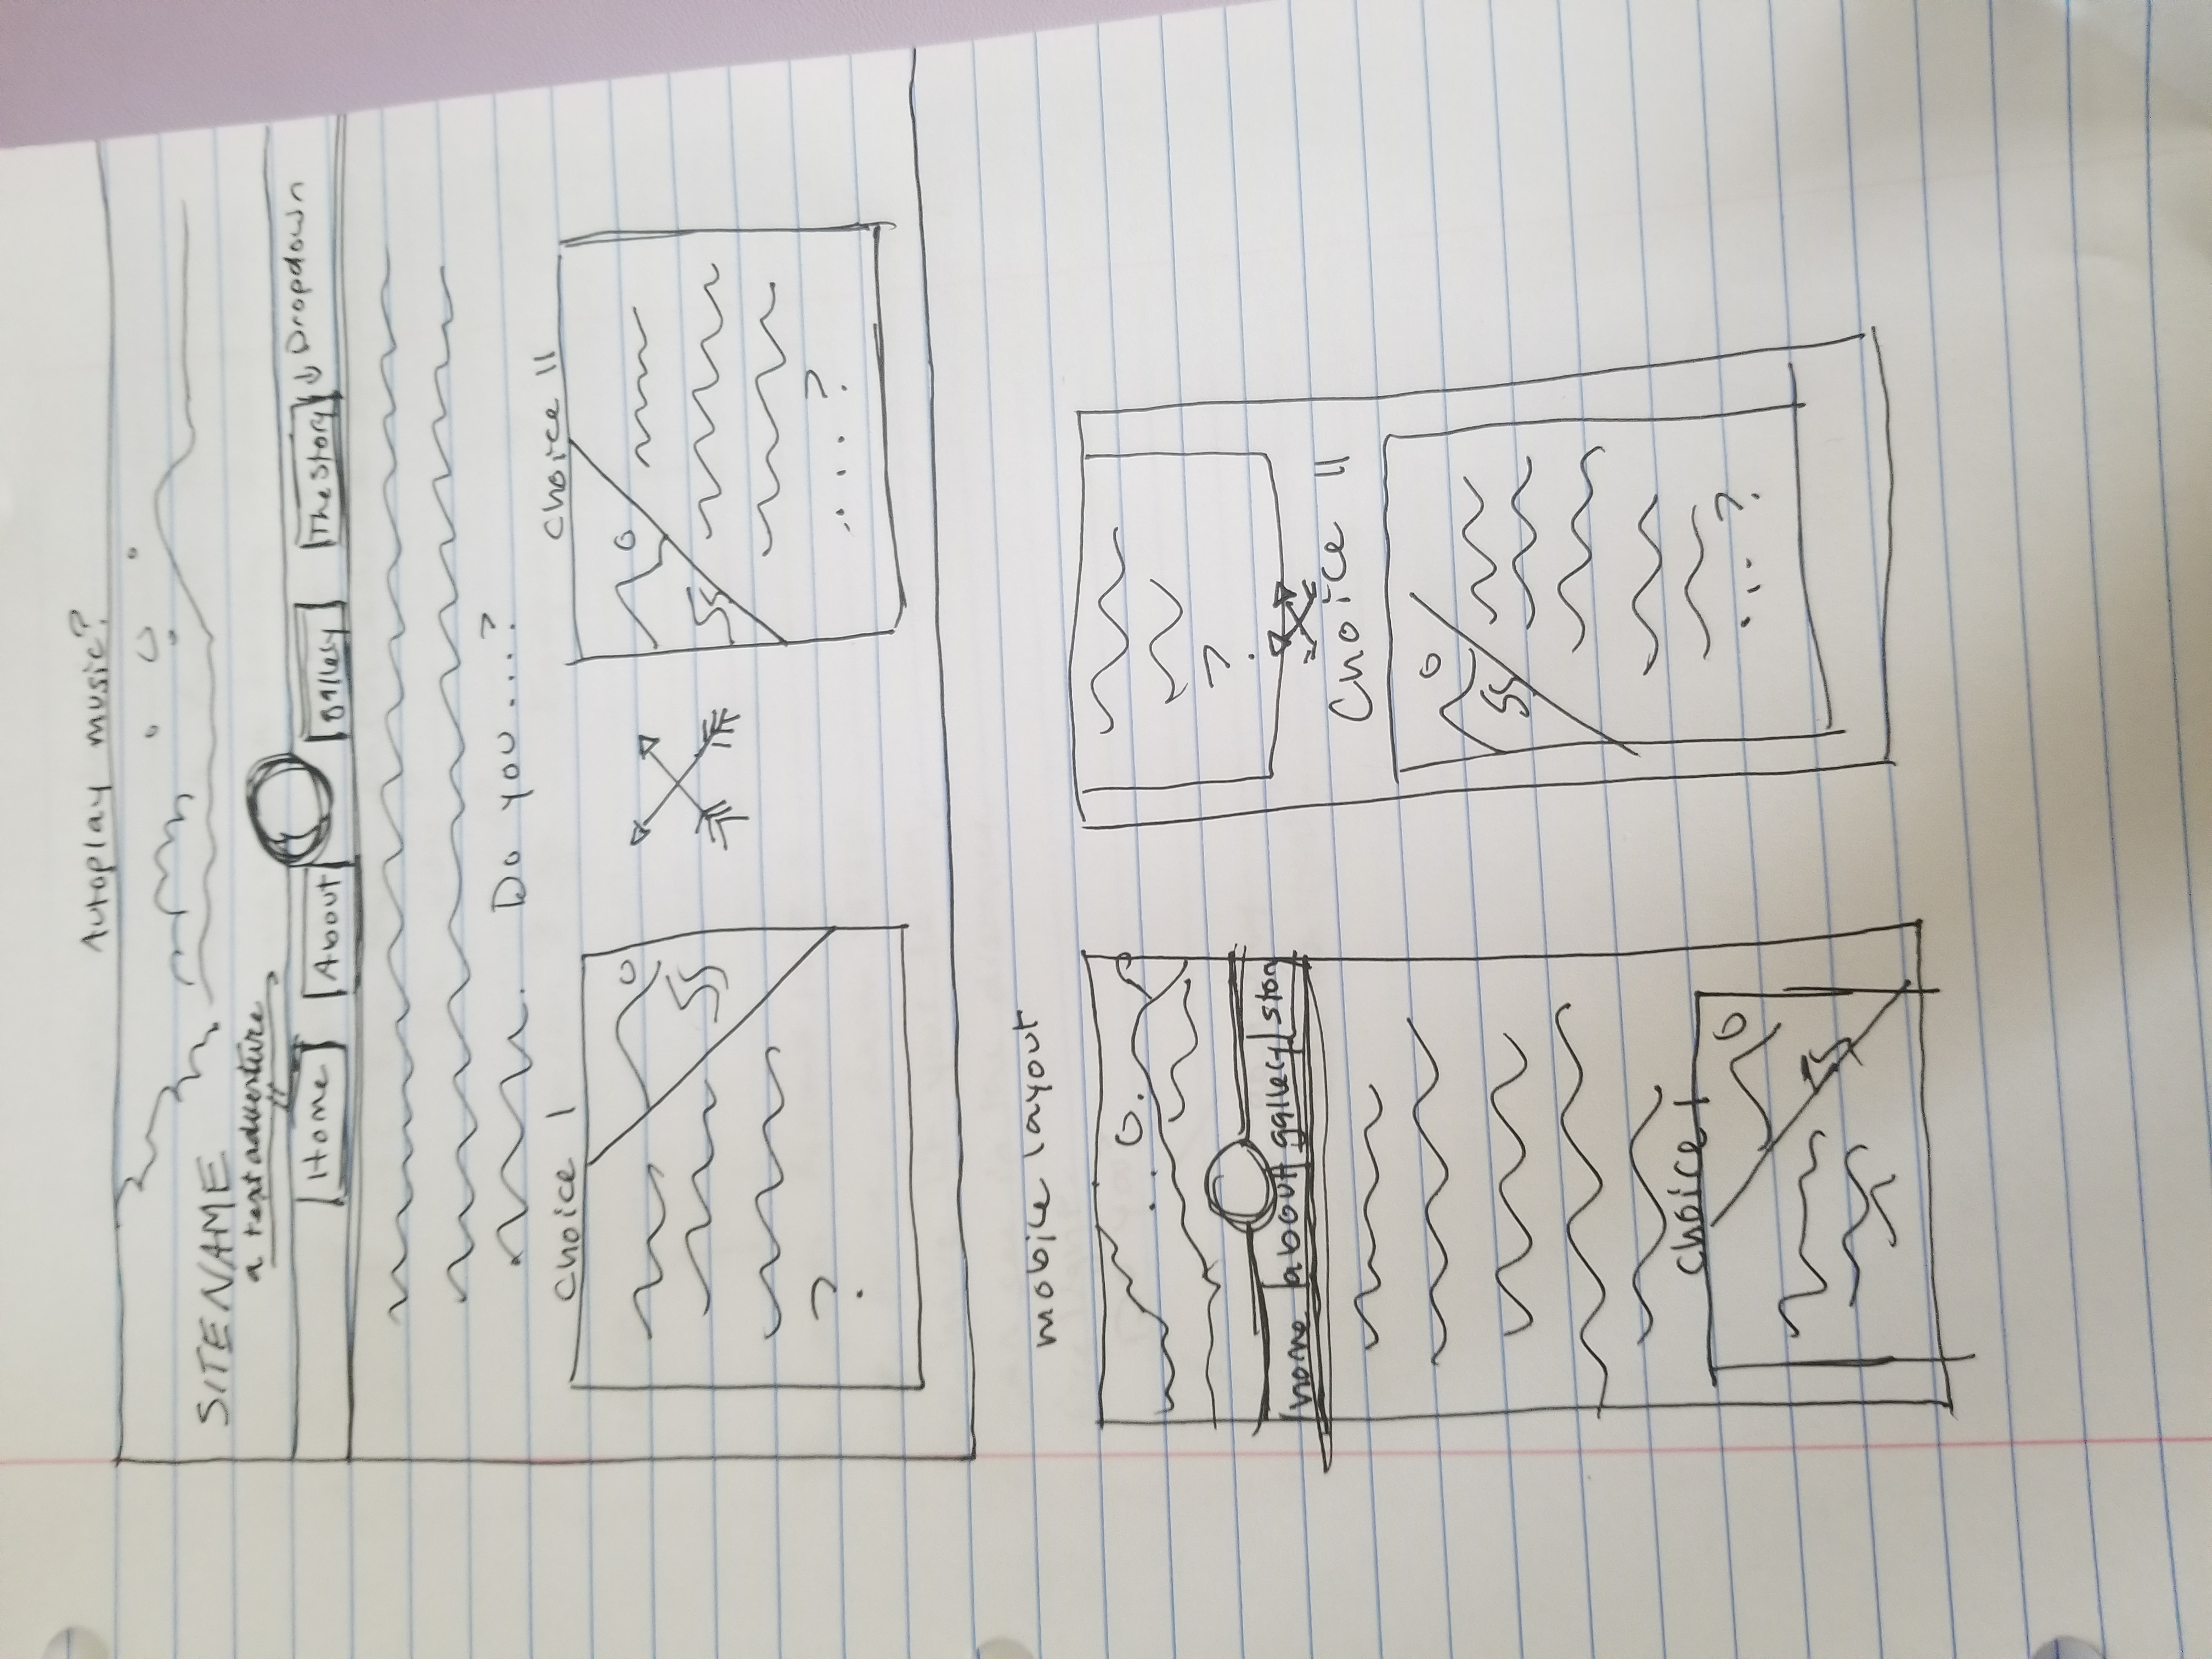 Autoplay music?
SITENAME
a text adventure
Home About gallery The Story ↓ Dropdown
Do you....?
Choice I
Choice II
?
....?
mobile layout
home about gallery story
choice I
?
Choice II
...?